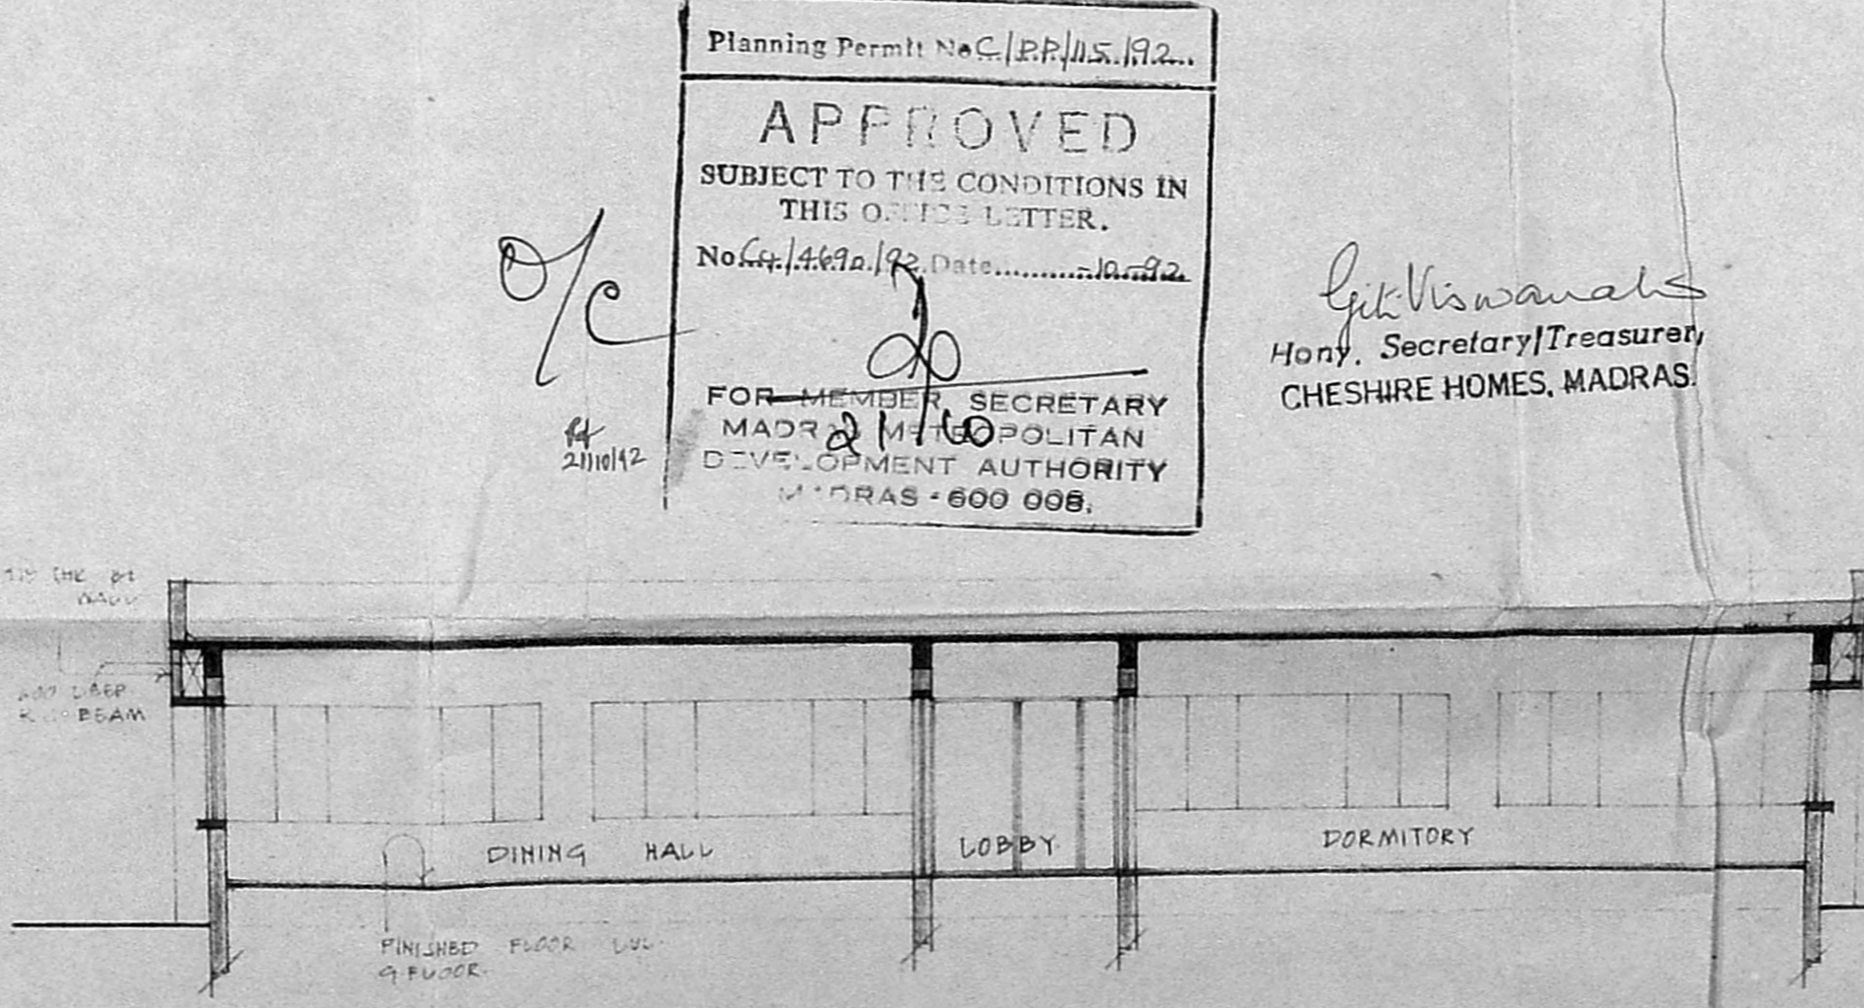 Planning Permit No C/P.P/115/92
APPROVED
SUBJECT TO THE CONDITIONS IN
THIS OFFICE LETTER.
No. C4/4690/92 Date..........-10-92
O/C
FOR MEMBER SECRETARY
21/10
MADRAS METROPOLITAN
DEVELOPMENT AUTHORITY
MADRAS - 600 008.
21/10/92
Viswanath
Hony. Secretary/Treasurer,
CHESHIRE HOMES, MADRAS.
DEEP
BEAM
DINING HALL
LOBBY
DORMITORY
FINISHED FLOOR LVL.
G FLOOR.